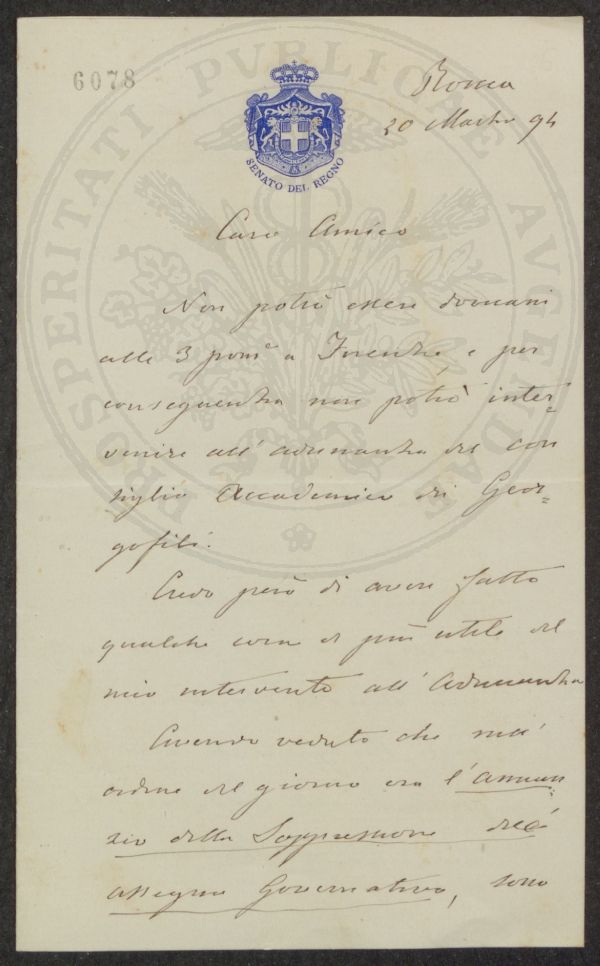 6078
PROSPERITATI PVBLICAE AVGENDAE
SENATO DEL REGNO
Roma
20 Marzo 94
Caro Amico
Non potrò essere domani
alle 3 pom a Firenze, e per
conseguenza non potrò inter=
venire all' adunanza del con
siglio Accademico dei Geor=
gofili.
Credo però di avere fatto
qualche cosa di più utile del
mio intervento all' Adunanza
Avendo veduto che nell'
ordine del giorno era l' annun=
zio della Soppressione dell'
assegno Governativo, sono